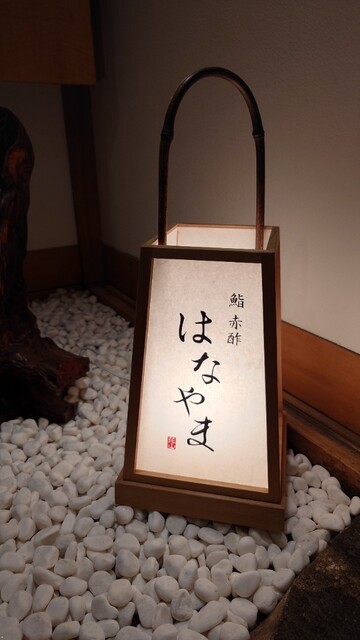 鮨 赤酢
はなやま